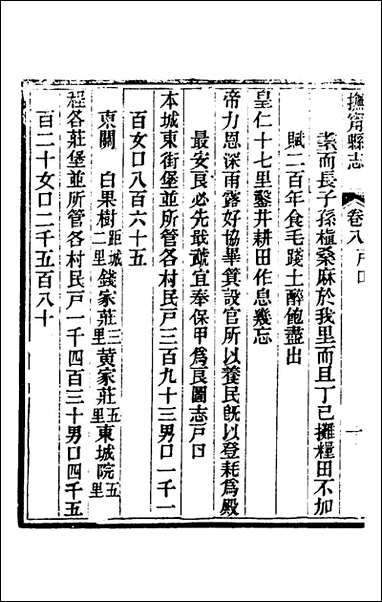 撫甯縣志　卷八戶口　一
業而長子孫植桑麻於我里而且丁已攤糧田不加
賦二百年食毛踐土醉飽盡出
皇仁十七里鑿井耕田作息幾忘
帝力恩深雨露好協畢箕設官所以養民旣以登耗爲殿
最安良必先戢宄宜奉保甲爲良圖志戶口
本城東街堡並所管各村民戶三百九十三男口一千一
百女口八百六十五
東關　白果樹距城二里錢家莊三里黄家莊五里東城院五里
程各莊堡並所管各村民戶一千四百三十男口四千五
百二十女口二千五百八十